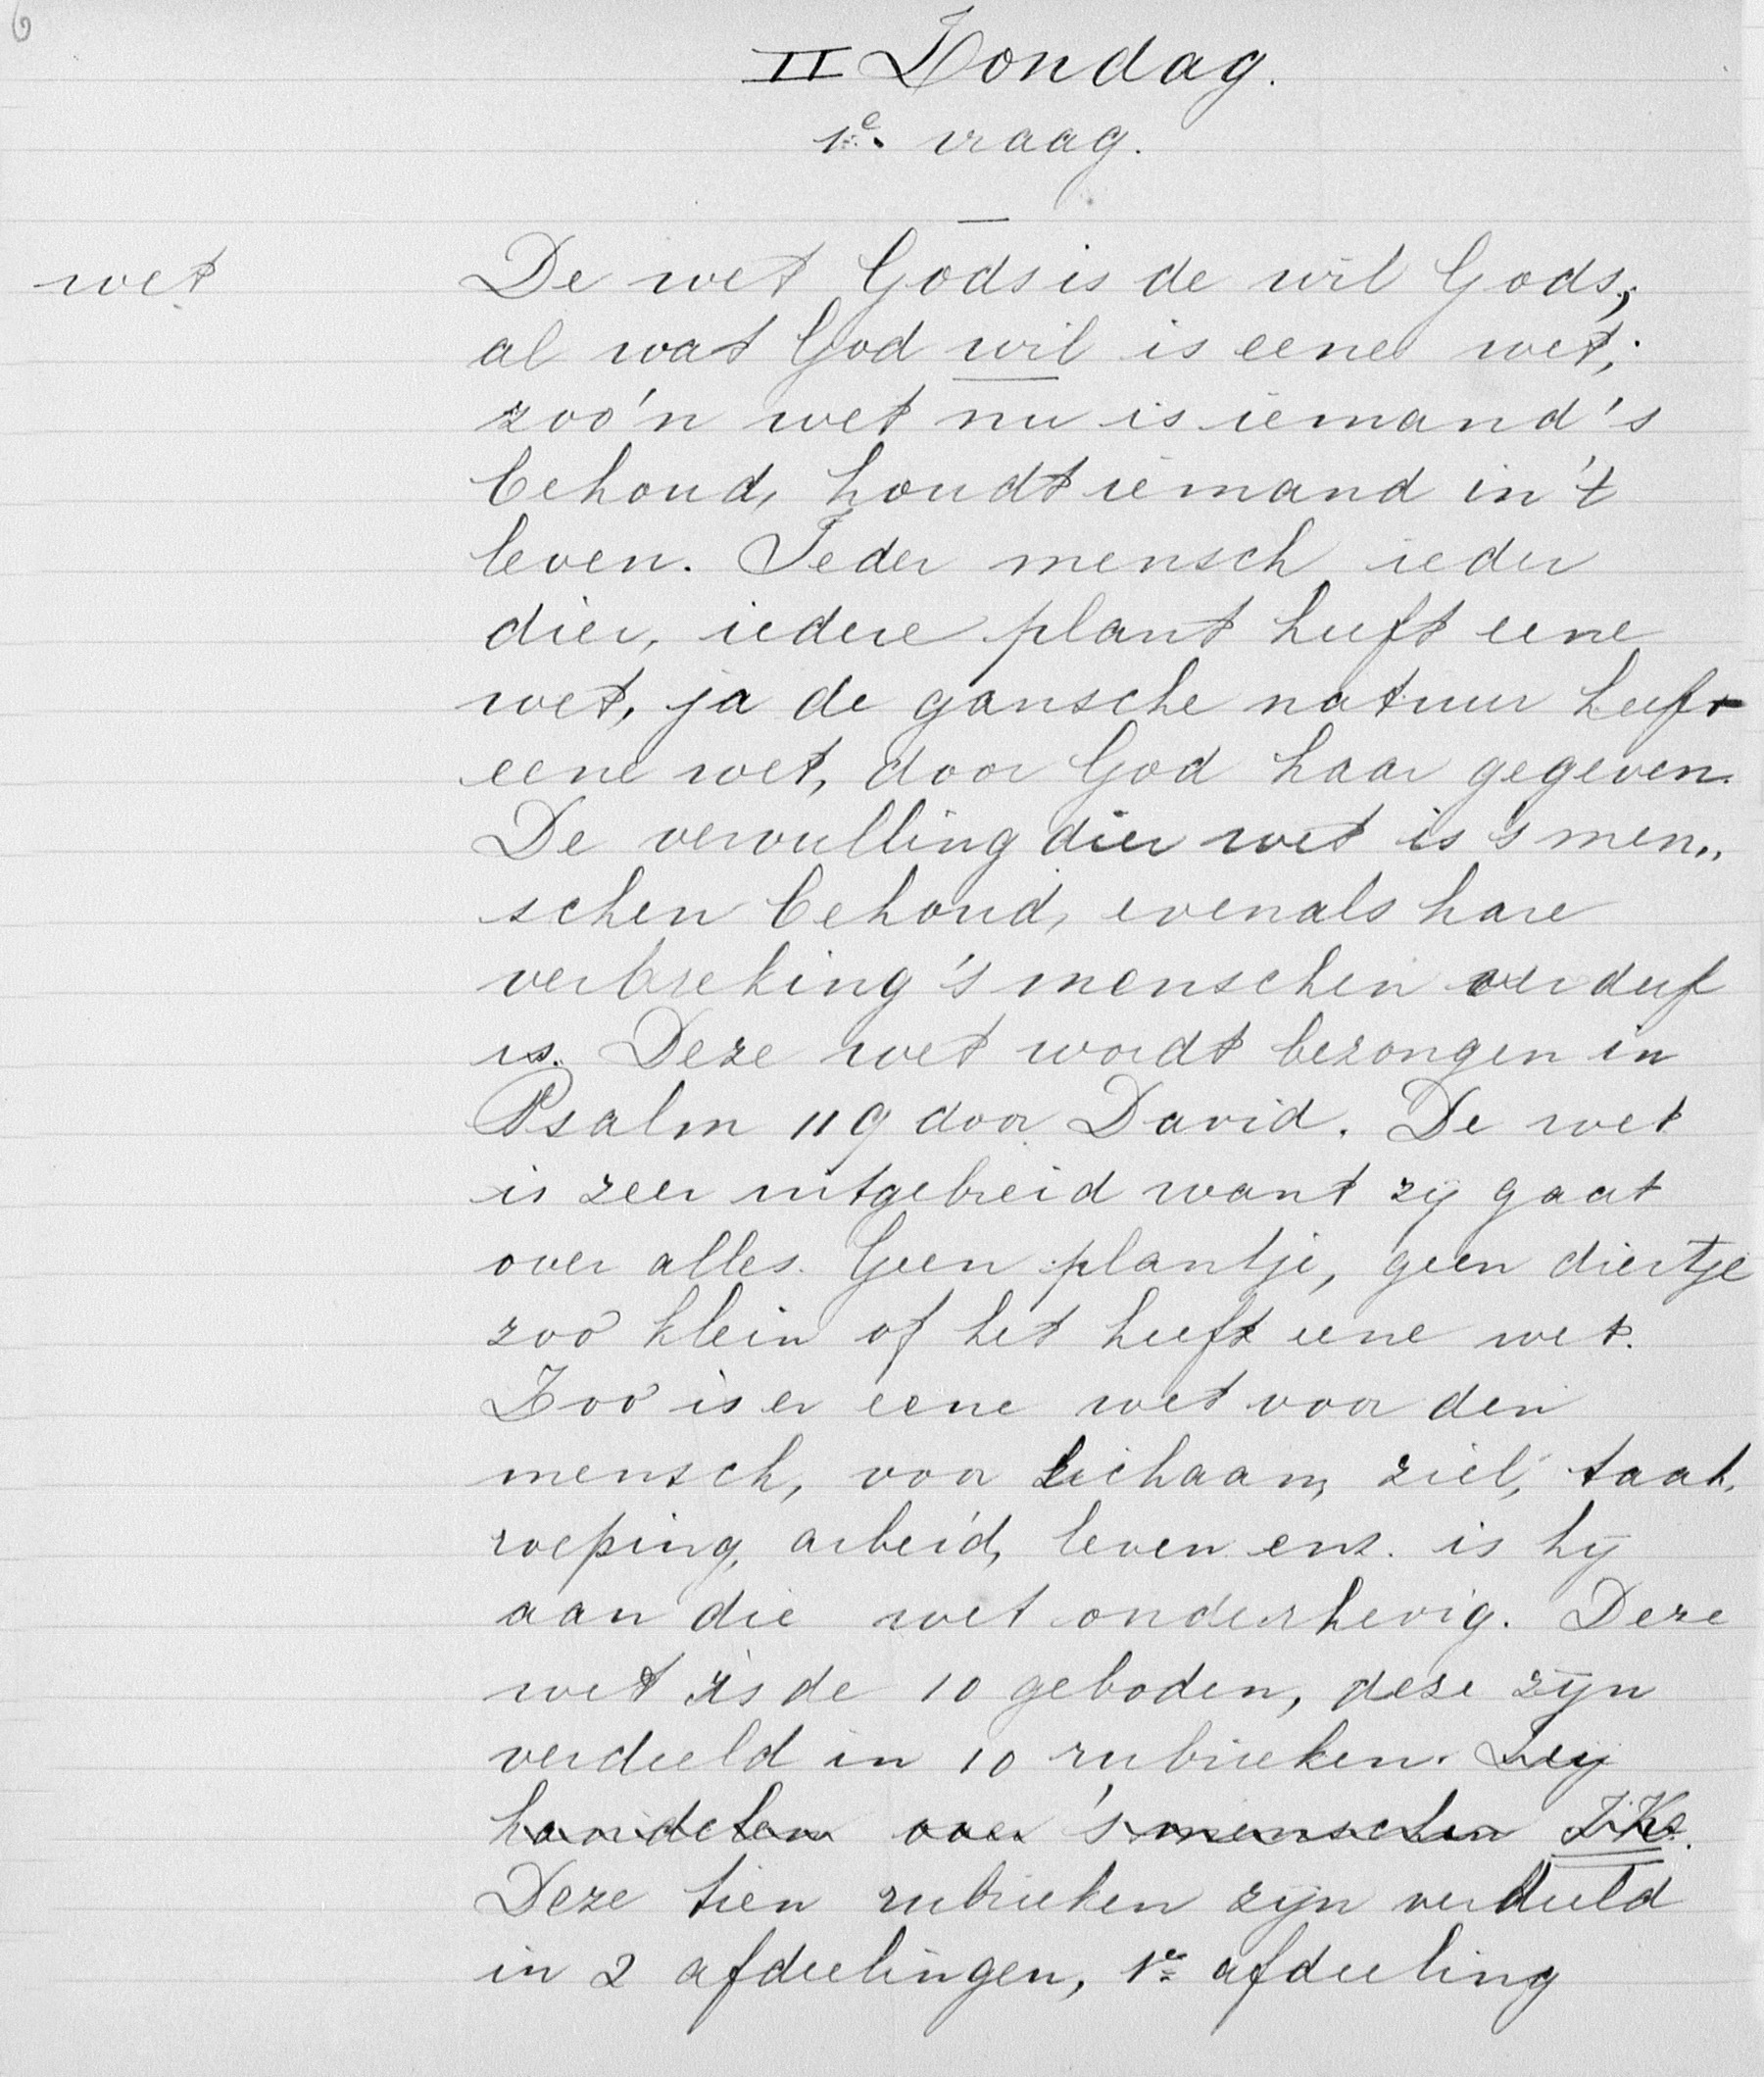 6
II Zondag.
1e vraag.
wet
De wet Gods is de wil Gods;
al wat God wil is eene wet;
zoo'n wet nu is iemand's
behoud, houdt iemand in 't
leven. Ieder mensch ieder
dier, iedere plant heeft eene
wet, ja de gansche natuur heeft
eene wet, door God haar gegeven.
De vervulling dier wet is 's men„
schen behoud, evenals hare
verbreking 's menschen verderf
is. Deze wet wordt bezongen in
Psalm 119 door David. De wet
is zeer uitgebreid want zij gaat
over alles. Geen plantje, geen diertje
zoo klein of het heeft eene wet.
Zoo is er eene wet voor den
mensch, voor lichaam, ziel, taak,
roeping, arbeid, leven enz. is hij
aan die wet onderhevig. Deze
wet is de 10 geboden, deze zijn
verdeeld in 10 rubrieken. Zij
handelen over 's menschen
Deze tien rubrieken zijn verdeeld
in 2 afdeelingen, 1e afdeeling